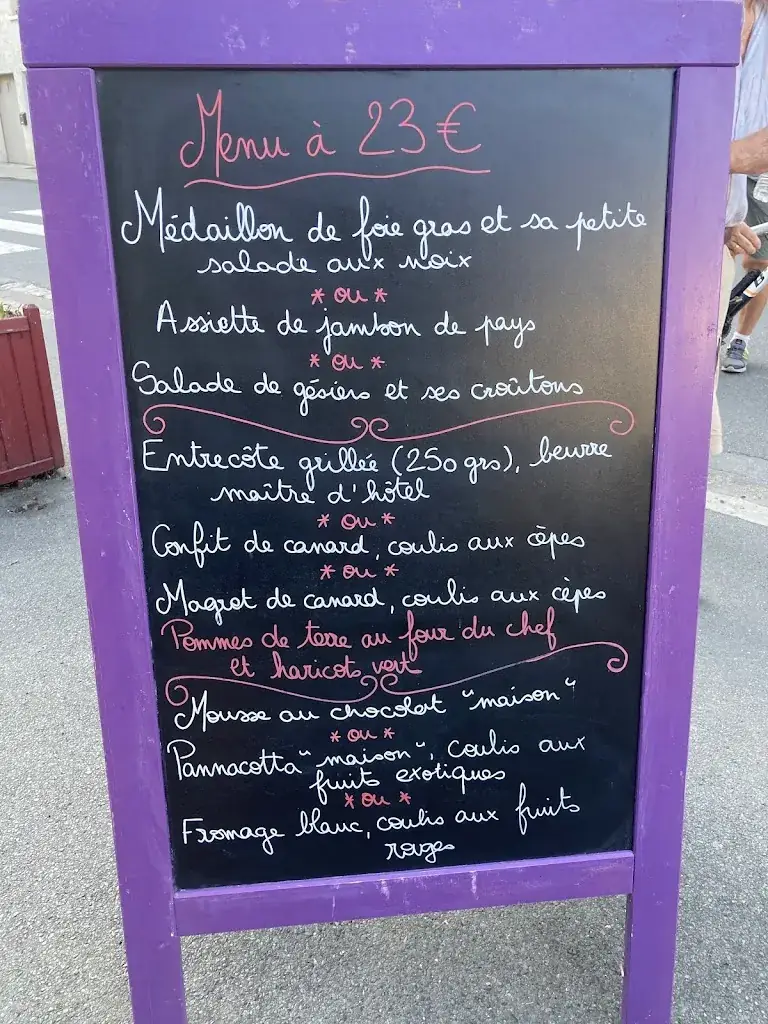 Menu à 23€
Médaillon de foie gras et sa petite
salade aux noix
* ou *
Assiette de jambon de pays
* ou *
Salade de gésiers et ses croûtons
Entrecôte grillée (250 grs), beurre
maître d'hôtel
* ou *
Confit de canard, coulis aux cèpes
* ou *
Magret de canard, coulis aux cèpes
Pommes de terre au four du chef
et haricots vert
Mousse au chocolat "maison"
* ou *
Pannacotta "maison", coulis aux
fruits exotiques
* ou *
Fromage blanc, coulis aux fruits
rouges